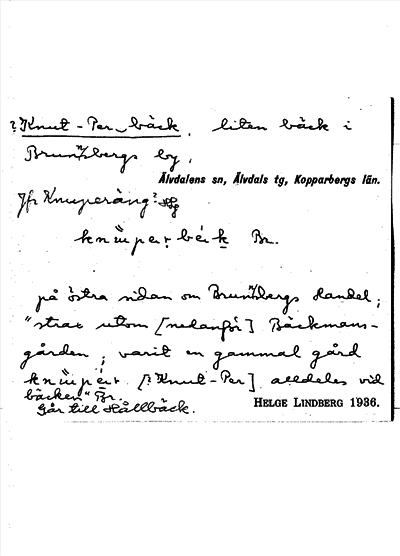 ? Knut-Per-bäck, liten bäck i
Brunnsbergs by,
Älvdalens sn, Älvdals tg, Kopparbergs län.
Jfr Knuperäng?
Br.
på östra sidan om Brunnsbergs Handel;
"strax utom [nedanför] Bäckmans-
gården; varit en gammal gård
[? Knut-Per] alldeles vid
bäcken" Br.
Går till Hållbäck.
HELGE LINDBERG 1936.